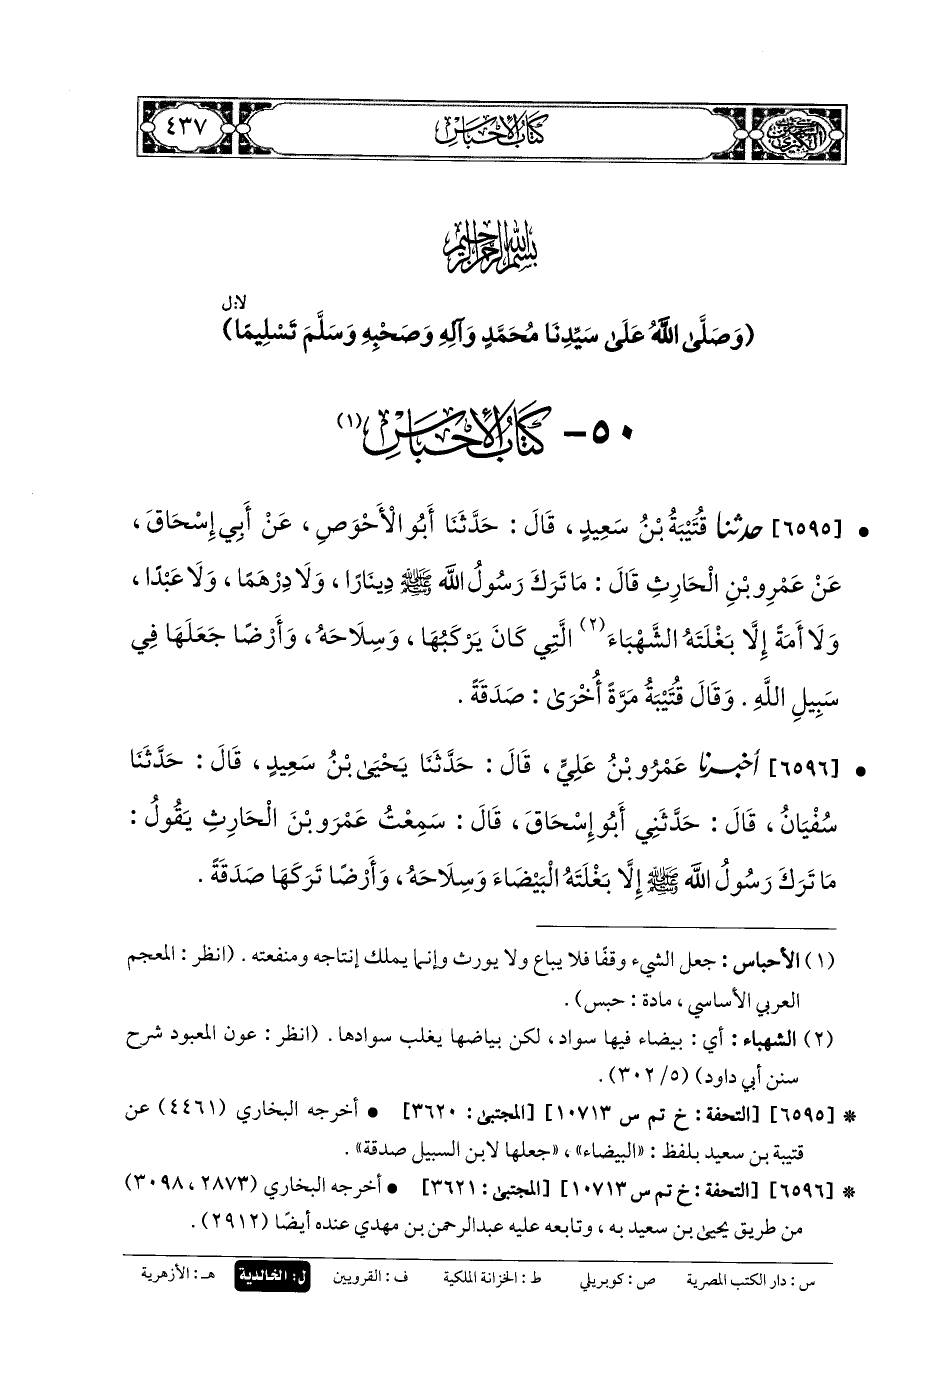 السنن الكبرى
كتاب الأحباس
٤٣٧
بسم الله الرحمن الرحيم
لا:ل
(وَصَلَّى اللَّهُ عَلَى سَيِّدِنَا مُحَمَّدٍ وَآلِهِ وَصَحْبِهِ وَسَلَّمَ تَسْلِيمًا)
٥٠- كتاب الأحباس(١)
• [٦٥٩٥] حدثنا قُتَيْبَةُ بْنُ سَعِيدٍ، قَالَ: حَدَّثَنَا أَبُو الْأَحْوَصِ، عَنْ أَبِي إِسْحَاقَ،
عَنْ عَمْرِو بْنِ الْحَارِثِ قَالَ: مَا تَرَكَ رَسُولُ اللَّهِ ﷺ دِينَارًا، وَلَا دِرْهَمًا، وَلَا عَبْدًا،
وَلَا أَمَةً إِلَّا بَغْلَتَهُ الشَّهْبَاءَ(٢) الَّتِي كَانَ يَرْكَبُهَا، وَسِلَاحَهُ، وَأَرْضًا جَعَلَهَا فِي
سَبِيلِ اللَّهِ. وَقَالَ قُتَيْبَةُ مَرَّةً أُخْرَى: صَدَقَةً.
• [٦٥٩٦] أخبرنا عَمْرُو بْنُ عَلِيٍّ، قَالَ: حَدَّثَنَا يَحْيَى بْنُ سَعِيدٍ، قَالَ: حَدَّثَنَا
سُفْيَانُ، قَالَ: حَدَّثَنِي أَبُو إِسْحَاقَ، قَالَ: سَمِعْتُ عَمْرَو بْنَ الْحَارِثِ يَقُولُ:
مَا تَرَكَ رَسُولُ اللَّهِ ﷺ إِلَّا بَغْلَتَهُ الْبَيْضَاءَ وَسِلَاحَهُ، وَأَرْضًا تَرَكَهَا صَدَقَةً.
(١) الأحباس: جعل الشيء وقفًا فلا يباع ولا يورث وإنما يملك إنتاجه ومنفعته. (انظر: المعجم
العربي الأساسي، مادة: حبس).
(٢) الشهباء: أي: بيضاء فيها سواد، لكن بياضها يغلب سوادها. (انظر: عون المعبود شرح
سنن أبي داود) (٥/ ٣٠٢).
* [٦٥٩٥] [التحفة: خ تم س ١٠٧١٣] [المجتبى: ٣٦٢٠] • أخرجه البخاري (٤٤٦١) عن
قتيبة بن سعيد بلفظ: «البيضاء»، «جعلها لابن السبيل صدقة».
* [٦٥٩٦] [التحفة: خ تم س ١٠٧١٣] [المجتبى: ٣٦٢١] • أخرجه البخاري (٢٨٧٣، ٣٠٩٨)
من طريق يحيى بن سعيد به، وتابعه عليه عبدالرحمن بن مهدي عنده أيضًا (٢٩١٢).
س: دار الكتب المصرية ص: كوبريلي ط: الخزانة الملكية ف: القرويين ل: الخالدية هـ: الأزهرية